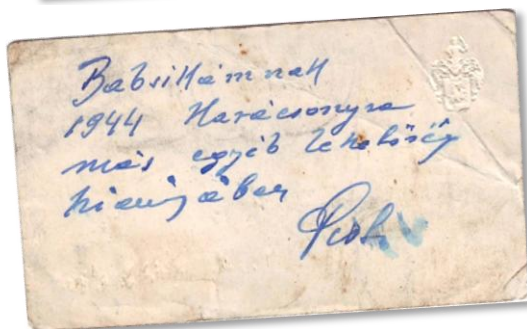 Babsikámnak
1944 Karácsonyra
más egyéb lehetőség
hiányában